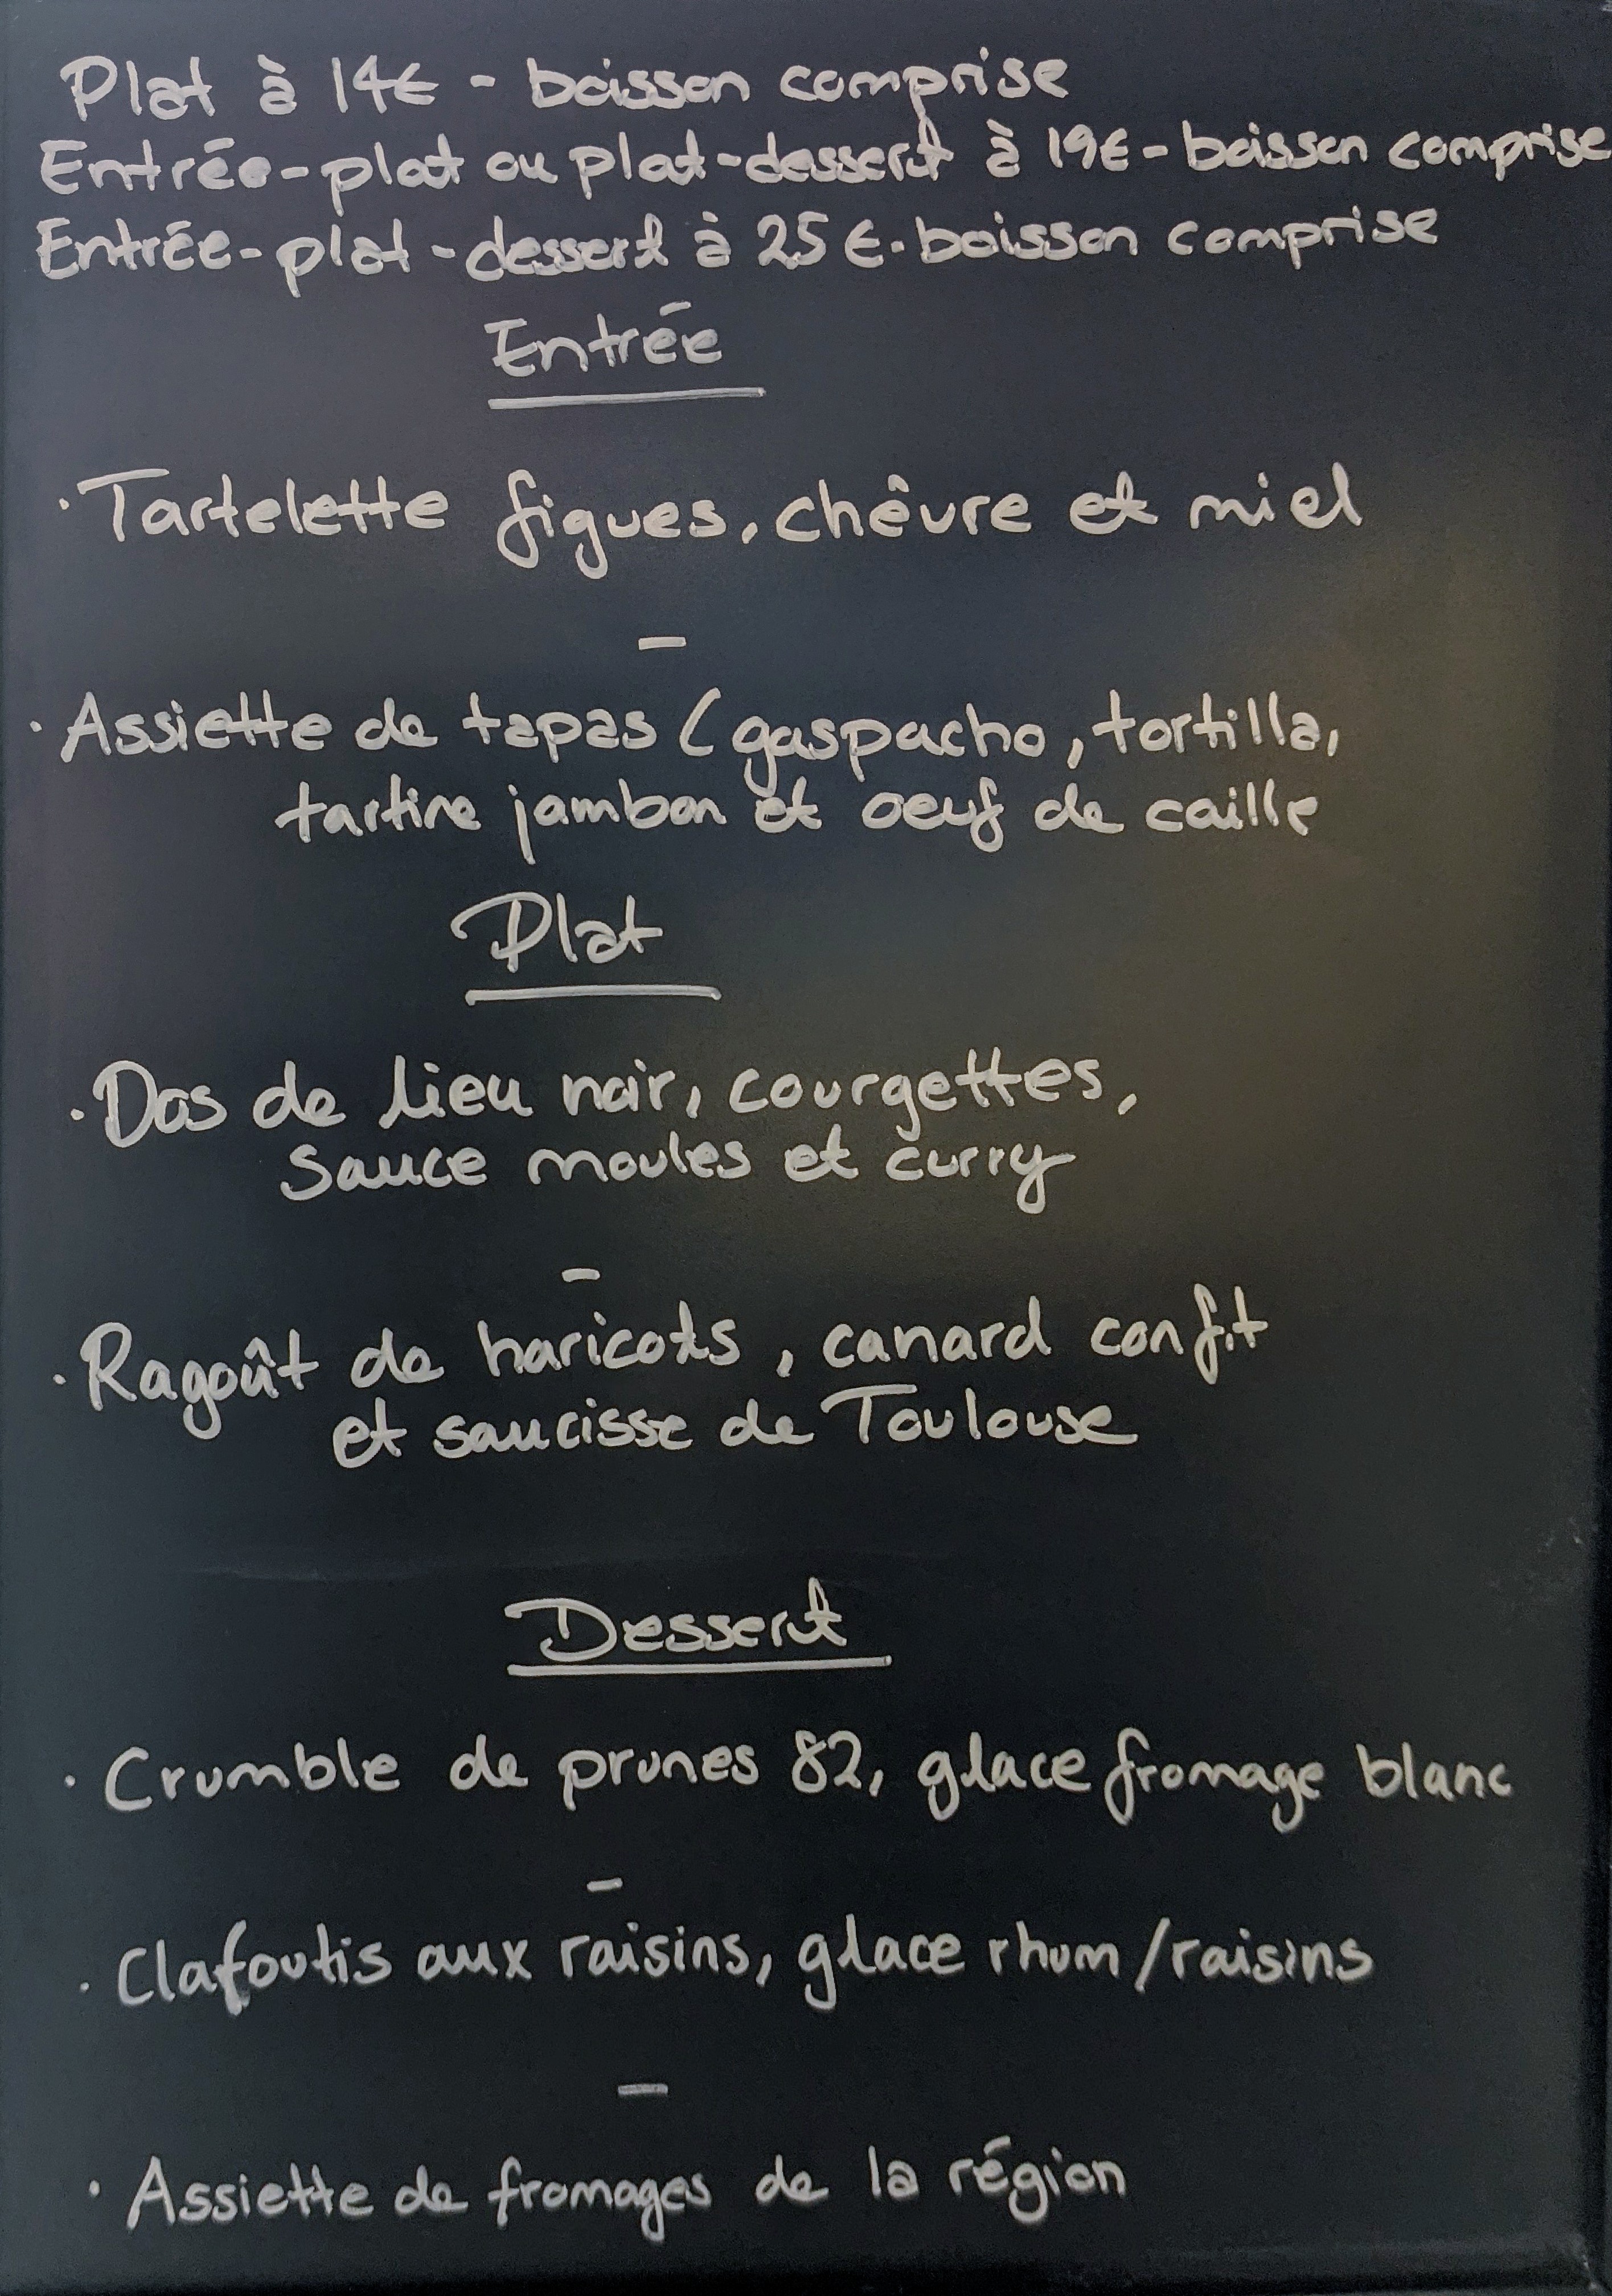 Plat à 14€ - boisson comprise
Entrée-plat ou plat-dessert à 19€ - boisson comprise
Entrée-plat-dessert à 25€-boisson comprise
Entrée
· Tartelette figues, chêvre et miel
-
· Assiette de tapas (gaspacho, tortilla,
tartine jambon et oeuf de caille
Plat
· Dos de lieu noir, courgettes,
sauce moules et curry
-
· Ragoût de haricots, canard confit
et saucisse de Toulouse
Dessert
· Crumble de prunes 82, glace fromage blanc
-
· Clafoutis aux raisins, glace rhum/raisins
-
· Assiette de fromages de la région